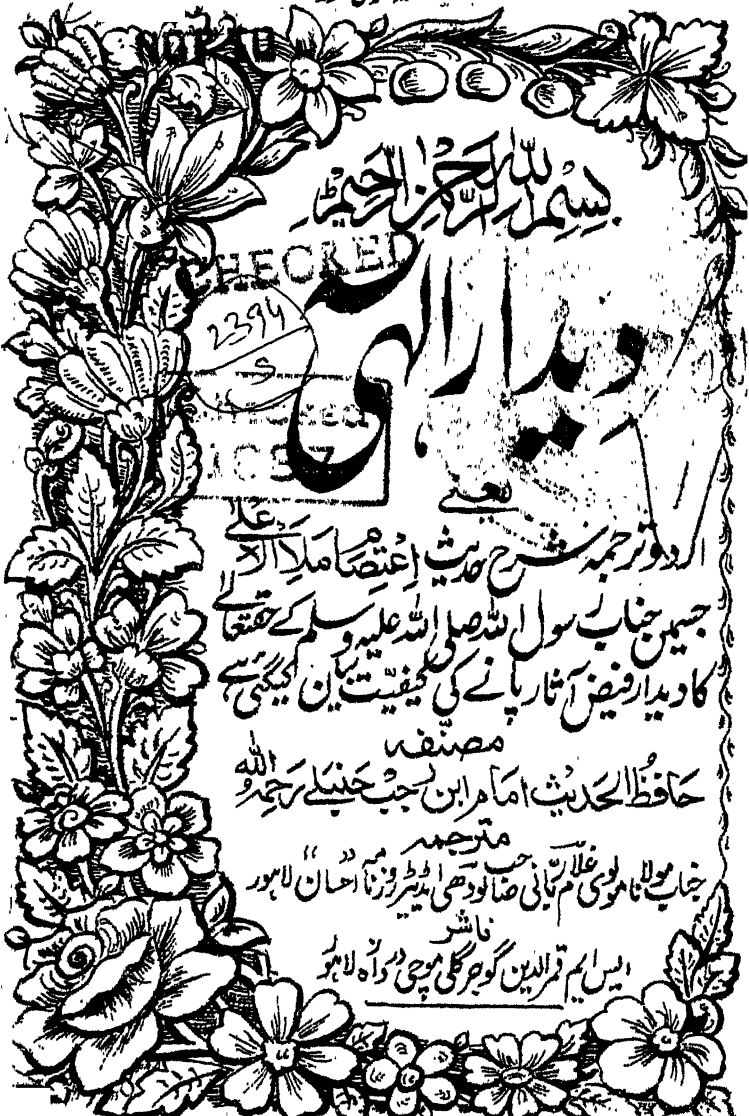 بِسْمِ اللهِ الرَّحْمٰنِ الرَّحِيْمِ
CHECKED
2394
دیدار الٰہی
یعنی
اردو ترجمہ شرح حدیث اختصام ملاء الاعلیٰ
جسمیں جناب رسول اللہ صلی اللہ علیہ وسلم کے حقتعالیٰ
کا دیدار فیض آثار پانے کی کیفیت بیان کیگئی ہے
مصنّفہ
حافظُ الحدیث امام ابن رجب حنبلی رحمہُ اللہ
مترجمہ
جناب مولانا مولوی غلام ربانی صاحب لودھی ایڈیٹر روزنامہ "احسان" لاہور
ناشر
ایس ایم قمرالدین گوجر گلی موچی دروازہ لاہور